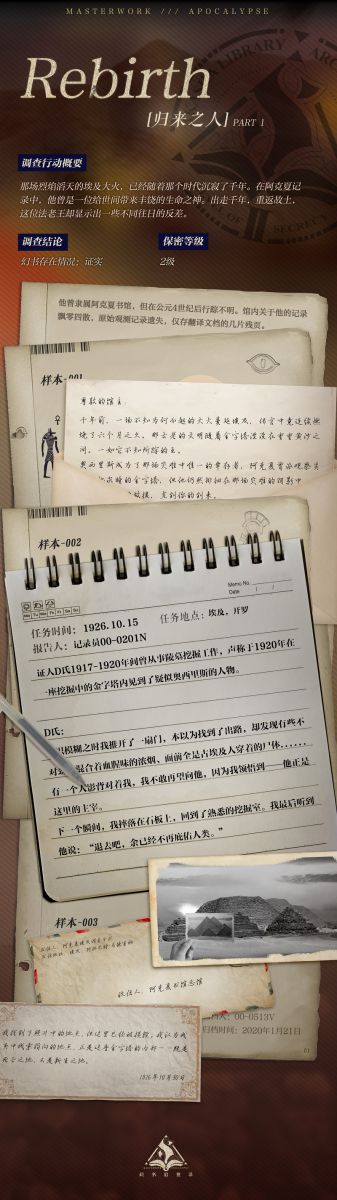 MASTERWORK /// APOCALYPSE
Rebirth
[归来之人] PART 1
调查行动概要
那场烈焰滔天的埃及大火，已经随着那个时代沉寂了千年。在阿克夏记
录中，他曾是一位给世间带来丰饶的生命之神。出走千年，重返故土，
这位法老王却显示出一些不同往日的反差。
调查结论
保密等级
幻书存在情况：证实
2级
他曾隶属阿克夏书馆，但在公元4世纪后行踪不明。馆内关于他的记录
飘零四散，原始观测记录遗失，仅存翻译文档的几片残页。
样本-001
尊敬的馆主：
千年前，一场不知为何而起的大火蔓延埃及，传言中竟连续燃
烧了六个月之久。那古老的文明随着金字塔湮没在重重黄沙之
间，
奥西里斯成为了那场灾难中唯一的幸存者，
样本-002
Memo No.
Date / /
Mo Tu We Th Fr Sa Su
任务时间：1926.10.15
任务地点：埃及，开罗
报告人：记录员00-0201N
证人D氏1917-1920年间曾从事陵墓挖掘工作，声称于1920年在
一座挖掘中的金字塔内见到了疑似奥西里斯的人物。
D氏：
模糊之时我推开了一扇门，本以为找到了出路，却发现有些不
混合着血腥味的浓烟，面前全是古埃及人穿着的尸体……
有一个人影背对着我，我不敢再望向他，因为我领悟到——他正是
这里的主宰。
下一个瞬间，我摔落在石板上，回到了熟悉的挖掘室。我最后听到
他说：“退去吧，余已经不再庇佑人类。”
样本-003
收信人：阿克夏书馆总馆
00-0513V
归档时间：2020年1月21日
01
我找到了照片中的地点，但这里已经被摧毁，我认为我
1926年10月30日
幻书启世录